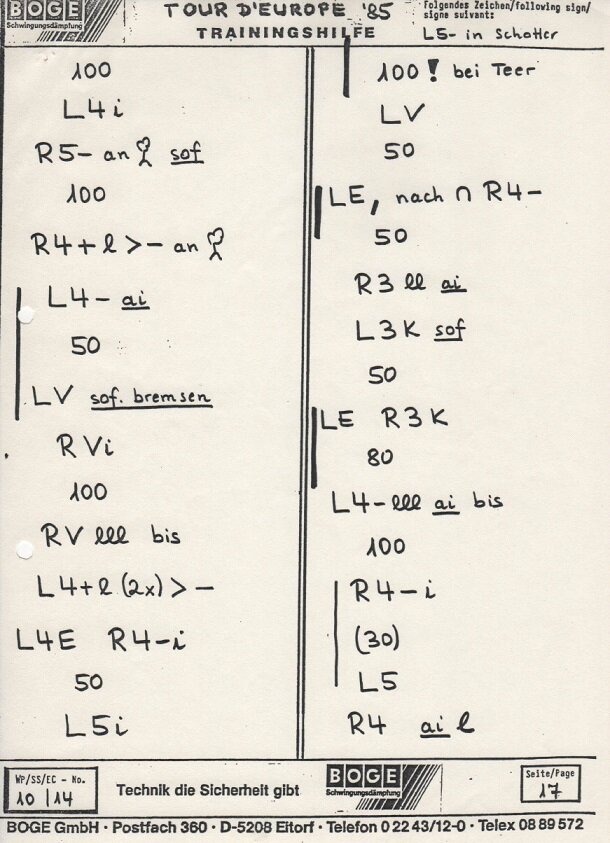 BOGE
Schwingungsdämpfung
TOUR D'EUROPE '85
TRAININGSHILFE
Folgendes Zeichen/following sign/
signe suivant:
L5- in Schotter
100
L4i
R5- an sof
100
R4+l>- an
L4- ai
50
LV sof. bremsen
RVi
100
RV lll bis
L4+l (2x) > -
L4E R4-i
50
L5i
100! bei Teer
LV
50
LE, nach ∩ R4-
50
R3 ll ai
L3K sof
50
LE R3K
80
L4-lll ai bis
100
R4-i
(30)
L5
R4 ai l
WP/SS/EC - No.
10/14
Technik die Sicherheit gibt
BOGE
Schwingungsdämpfung
Seite/Page
17
BOGE GmbH · Postfach 360 · D-5208 Eitorf · Telefon 0 22 43/12-0 · Telex 08 89 572